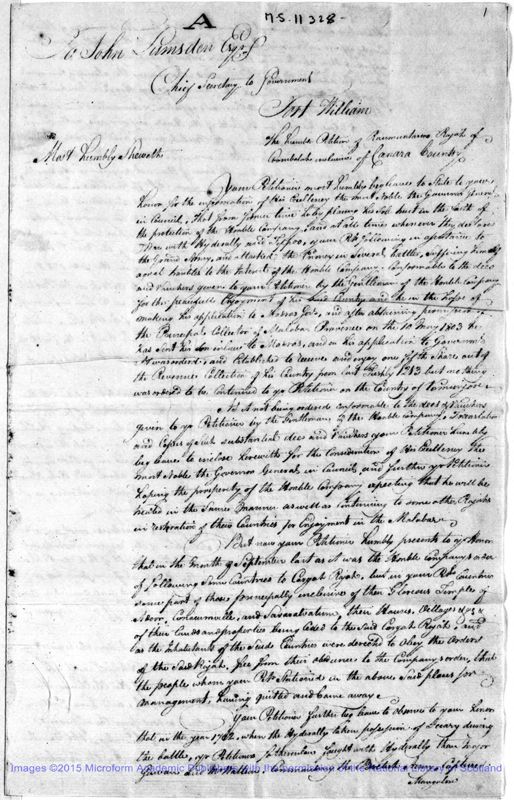 A
M.S. 11328-
1
To John Lumsden Esqr
Chief Secretary to Government
Fort William
The Humble Petition of Raumuntaroo Rajah of
inclusive of Canara Country
Most humbly Sheweth
Your Petitioner most humbly begs leave to State to your
Honor for the information of His Excellency the most Noble the Governor General
in Council, that from former time to by placing his sole trust in the faith of
the protection of the Honble Company, and at all times whenever they declare
War with Hyderally and Tippoo, your Petr following in assistance to
the Grand Army, and attacked the Enemy in Several battles, suffering himself
and hostiles to the intent of the Honble Company. Conformable to the deeds
and Vouchers given to your Petitioner by the Gentlemen of the Honble Company
for the peaceable Enjoyment of his said Country and he in the hopes of
making his application to Madras Govt, and after obtaining permission of
the Principal Collector of Malabar Provinces on the 10 May 1803 he
has sent his to Madras, and on his application to Government
forwarded, and Established to receive and enjoy one of the Shares out of
the Revenue Collection of his Country from last Fusily 1213 but nothing
was ordered to be continued to yr Petitioner on the Country of
As it not being ordered conformable to the deeds & Vouchers
given to yr Petitioner by the Gentlemen of the Honble Company, a Translation
and Copies of such substantial deeds and Vouchers your Petitioner humbly
beg leaves to enclose herewith for the Consideration of His Excellency the
most Noble the Governor General in Council, and further yr Petitioner
hoping the prosperity of the Honble Company expecting that he will be
treated in the same manner as well as continuing to some other Rajahs
in restoration of their Countries for Enjoyment in the Malabar
But now your Petitioner humbly presents to yr Honor
that in the month of September last as it was the Honble Company's order
of following some Countries to Corgah Rajah, but in your Petr Countries
some part of those principally inclusive of their Glorious Temples of
and their Houses, Villages &ca &ca
of their Lands and properties being Ceded to the Said Corgah Rajah and
as the Inhabitants of the Said Countries were directed to obey the orders
of the Said Rajah, free from their obedience to the Company's order, that
the people whom your Petr Stationed in the above said places for
management, having quitted and came away
Your Petitioner further beg leave to observe to your Honor
that in the year 1782 when the Hyderally taken possession of during
the battle, yr Petitioners forefathers fought with Hyderally than Major
and Mr commanding the
Images ©2015 Microform Academic Publishers with the permission of the National Library of Scotland